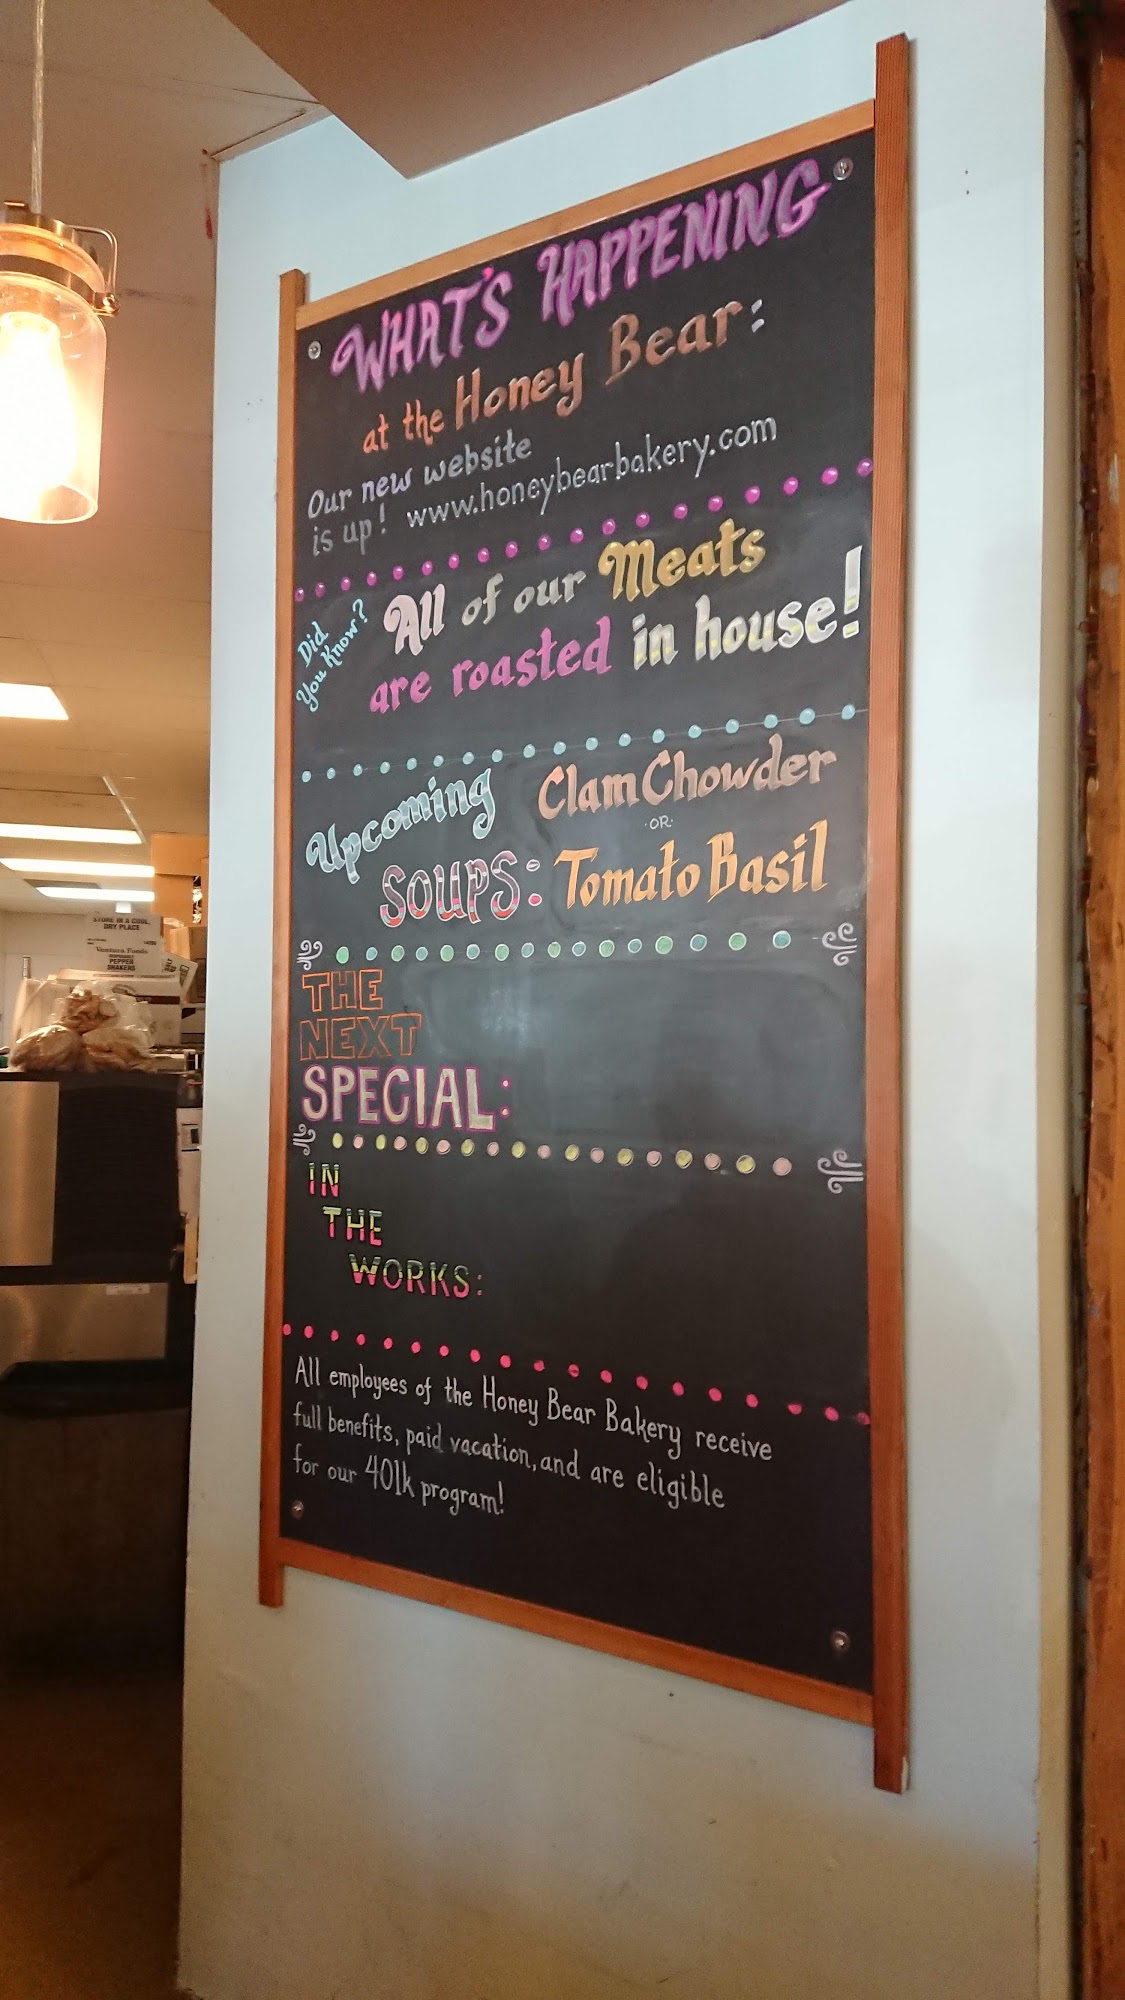 WHAT'S HAPPENING
at the Honey Bear:
Our new website
is up! www.honeybearbakery.com
Did
You Know?
All of our Meats
are roasted in house!
Upcoming
SOUPS:
Clam Chowder
·OR·
Tomato Basil
THE
NEXT
SPECIAL:
IN
THE
WORKS:
All employees of the Honey Bear Bakery receive
full benefits, paid vacation, and are eligible
for our 401k program!
STORE IN A COOL,
DRY PLACE
Ventura Foods
PEPPER
SHAKERS